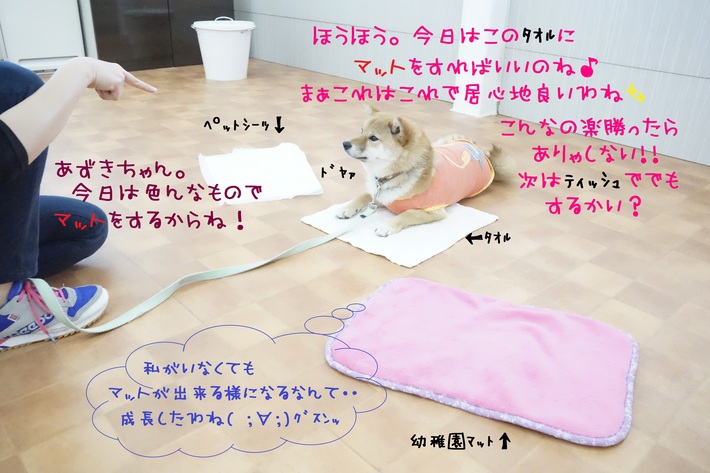 ほうほう。今日はこのﾀｵﾙに
マットをすればいいのね♪
まぁこれはこれで居心地良いわね
こんなの楽勝ったら
ありゃしない!!
次はﾃｨｯｼｭででも
するかい？
ﾍﾟｯﾄｼｰﾂ↓
ﾄﾞﾔｧ
あずきちゃん。
今日は色んなもので
マットをするからね！
←ﾀｵﾙ
私がいなくても
マットが出来る様になるなんて・・
成長したわね( ;∀;)ｸﾞｽﾝｯ
幼稚園ﾏｯﾄ↑